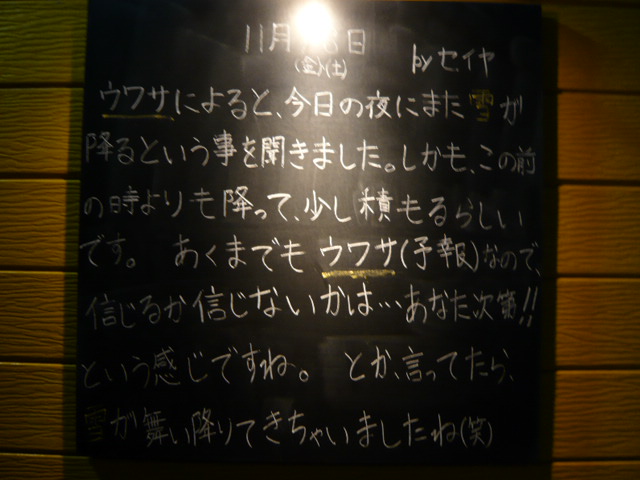 11月 8日
(金)(土) by セイヤ
ウワサによると、今日の夜にまた雪が
降るという事を聞きました。しかも、この前
の時よりも降って、少し積もるらしい
です。 あくまでもウワサ(予報)なので、
信じるか信じないかは…あなた次第!!
という感じですね。 とか、言ってたら、
雪が舞い降りてきちゃいましたね(笑)